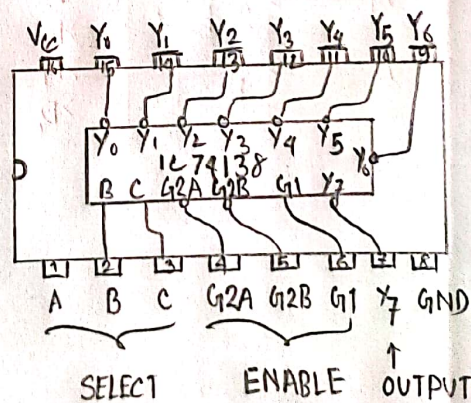 Vcc Y0 Y1 Y2 Y3 Y4 Y5 Y6
16 15 14 13 12 11 10 9
Y0 Y1 Y2 Y3 Y4 Y5
IC 74138 Y6
B C G2A G2B G1 Y7
1 2 3 4 5 6 7 8
A B C G2A G2B G1 Y7 GND
SELECT ENABLE OUTPUT